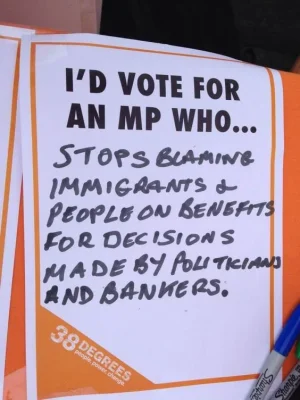 I'D VOTE FOR
AN MP WHO...
STOPS BLAMING
IMMIGRANTS &
PEOPLE ON BENEFITS
FOR DECISIONS
MADE BY POLITICIANS
AND BANKERS.
38 DEGREES
people. power. change.
Sharpie